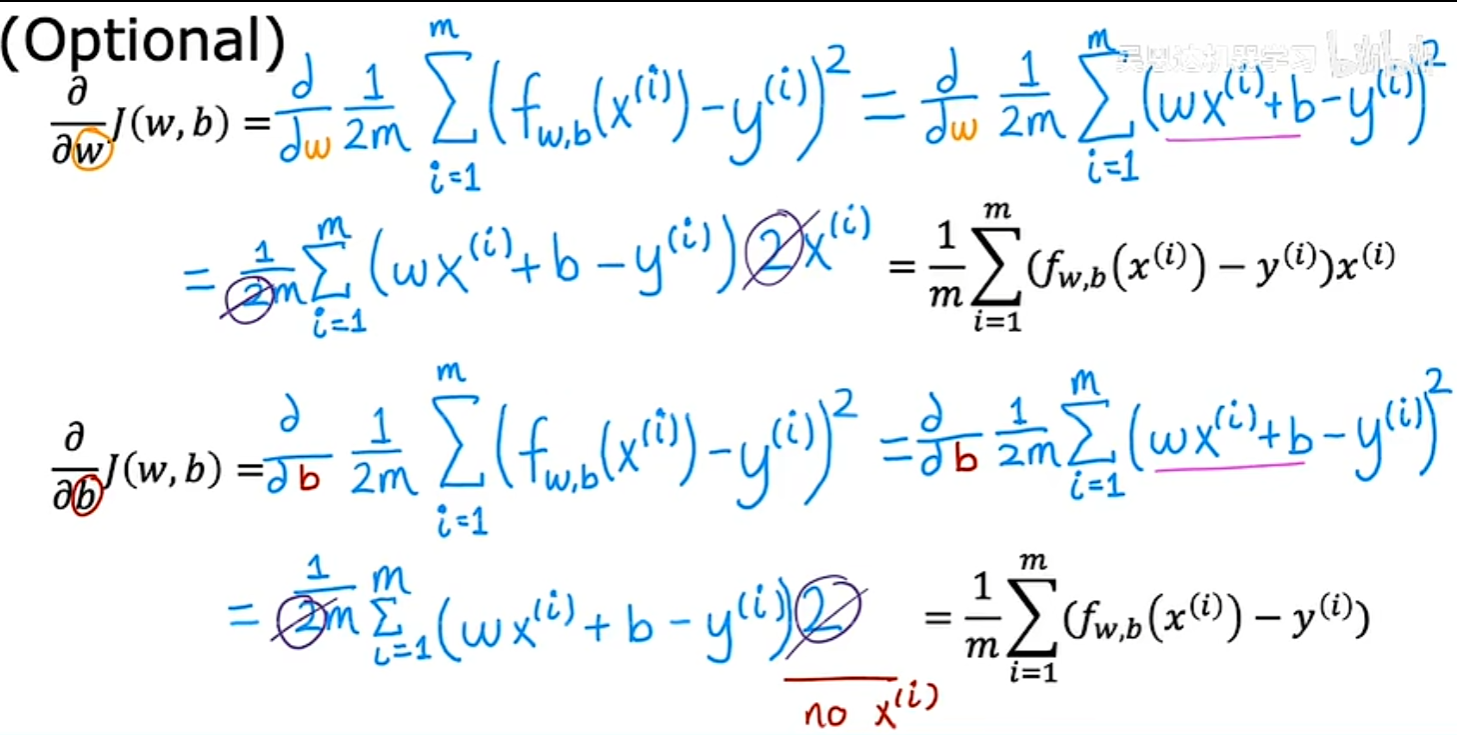 (Optional)
∂/∂w J(w, b) = d/dw 1/2m ∑_{i=1}^{m} (f_{w,b}(x^{(i)}) - y^{(i)})^2 = d/dw 1/2m ∑_{i=1}^{m} (wx^{(i)} + b - y^{(i)})^2
= 1/2m ∑_{i=1}^{m} (wx^{(i)} + b - y^{(i)}) 2x^{(i)} = 1/m ∑_{i=1}^{m} (f_{w,b}(x^{(i)}) - y^{(i)})x^{(i)}
∂/∂b J(w, b) = ∂/∂b 1/2m ∑_{i=1}^{m} (f_{w,b}(x^{(i)}) - y^{(i)})^2 = ∂/∂b 1/2m ∑_{i=1}^{m} (wx^{(i)} + b - y^{(i)})^2
= 1/2m ∑_{i=1}^{m} (wx^{(i)} + b - y^{(i)}) 2 = 1/m ∑_{i=1}^{m} (f_{w,b}(x^{(i)}) - y^{(i)})
no x^{(i)}
吴恩达机器学习 bilibili